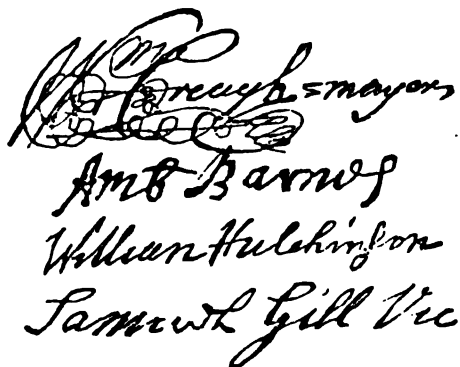 Wm Creagh = mayor
Amb Barnes
William Hutchinson
Samuell Gill Vic